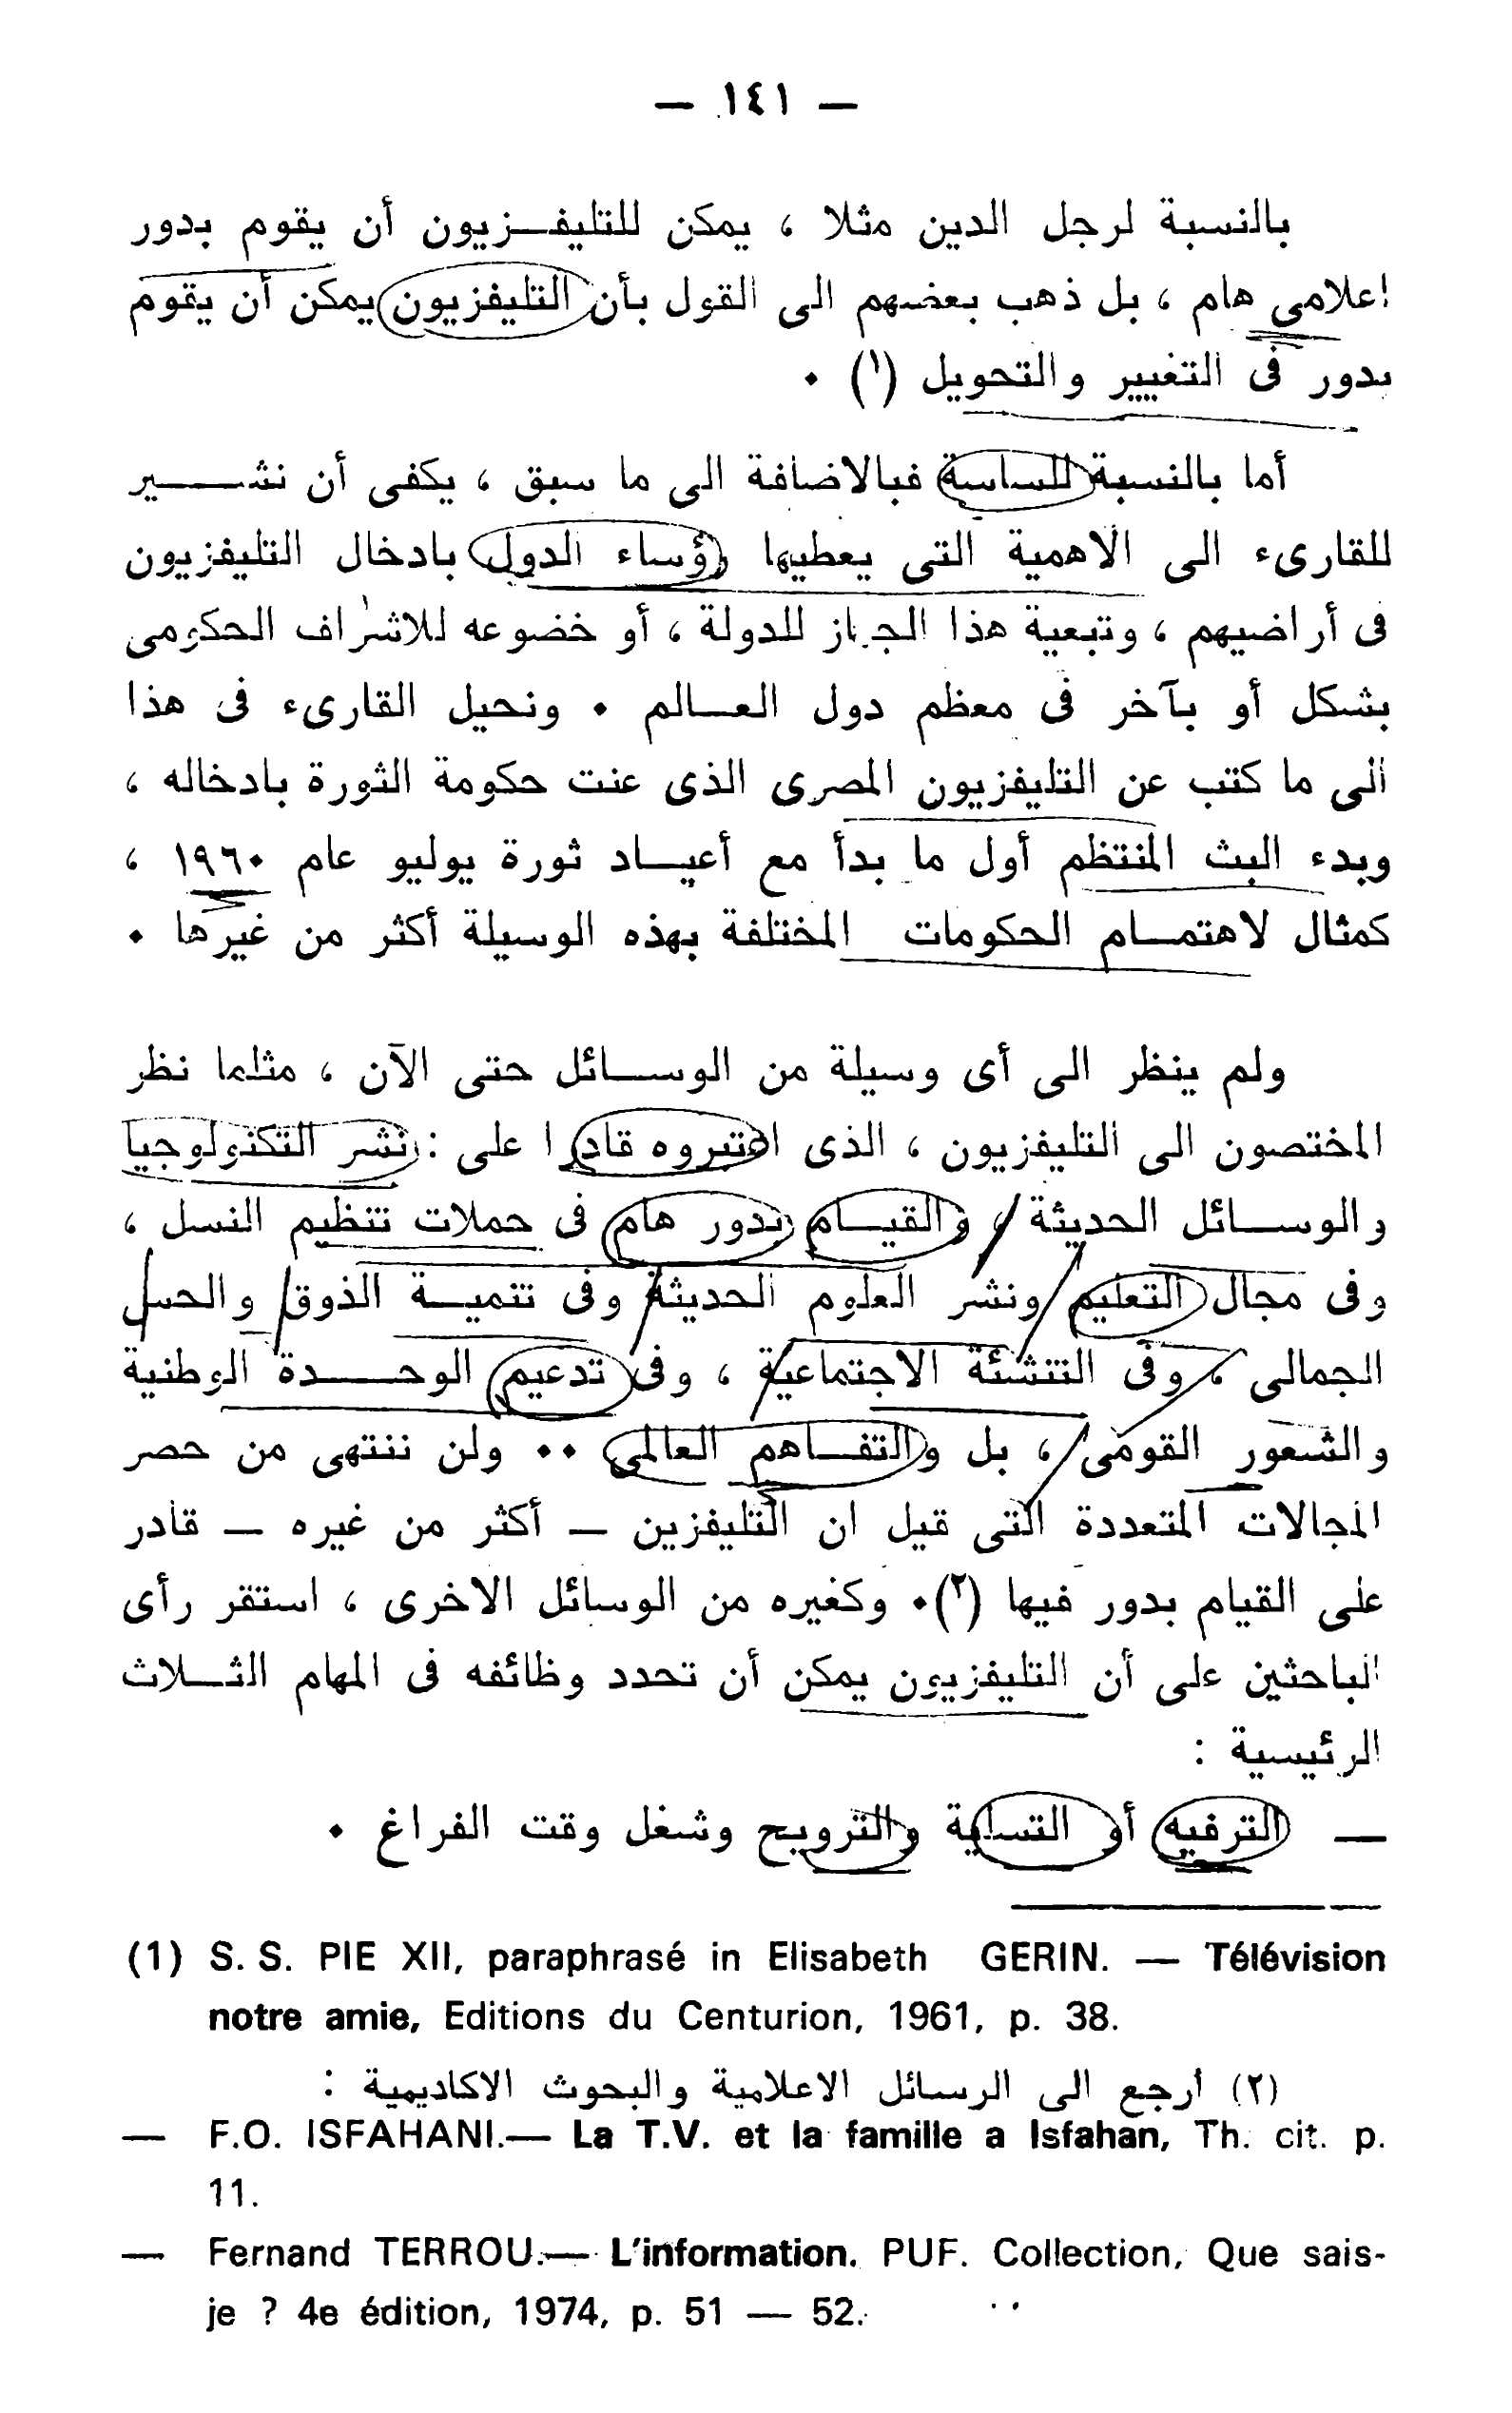 — ١٤١ —
بالنسبة لرجل الدين مثلا ، يمكن للتليفـزيون أن يقوم بدور
اعلامى هام ، بل ذهب بعضهم الى القول بأن التليفزيون يمكن أن يقوم
بدور فى التغيير والتحويل (١) ٠
أما بالنسبة للساسة فبالاضافة الى ما سبق ، يكفى أن نشـــير
للقارىء الى الاهمية التى يعطيها رؤساء الدول بادخال التليفزيون
فى أراضيهم ، وتبعية هذا الجهاز للدولة ، أو خضوعه للاشراف الحكومى
بشكل أو بآخر فى معظم دول العـالم ٠ ونحيل القارىء فى هذا
الى ما كتب عن التليفزيون المصرى الذى عنت حكومة الثورة بادخاله ،
وبدء البث المنتظم أول ما بدأ مع أعيـاد ثورة يوليو عام ١٩٦٠ ،
كمثال لاهتمـام الحكومات المختلفة بهذه الوسيلة أكثر من غيرها ٠
ولم ينظر الى أى وسيلة من الوسـائل حتى الآن ، مثلما نظر
المختصون الى التليفزيون ، الذى اعتبروه قادرا على : نشر التكنولوجيا
والوسـائل الحديثة ، والقيـام بدور هام فى حملات تنظيم النسل ،
وفى مجال التعليم ونشر العلوم الحديثة وفى تنميـة الذوق والحس
الجمالى ، وفى التنشئة الاجتماعية ، وفى تدعيم الوحــدة الوطنية
والشعور القومى ، بل والتفـاهم العالمى ٠٠ ولن ننتهى من حصر
المجالات المتعددة التى قيل ان التليفزين — أكثر من غيره — قادر
على القيام بدور فيها (٢)٠ وكغيره من الوسائل الاخرى ، استقر رأى
الباحثين على أن التليفزيون يمكن أن تحدد وظائفه فى المهام الثـلاث
الرئيسية :
— الترفيه أو التسلية والترويح وشغل وقت الفراغ ٠
(1) S. S. PIE XII, paraphrasé in Elisabeth GERIN. — Télévision
notre amie, Editions du Centurion, 1961, p. 38.
(٢) أرجع الى الرسائل الاعلامية والبحوث الاكاديمية :
— F.O. ISFAHANI.— La T.V. et la famille a Isfahan, Th. cit. p.
11.
— Fernand TERROU.— L'information. PUF. Collection, Que sais-
je ? 4e édition, 1974, p. 51 — 52.